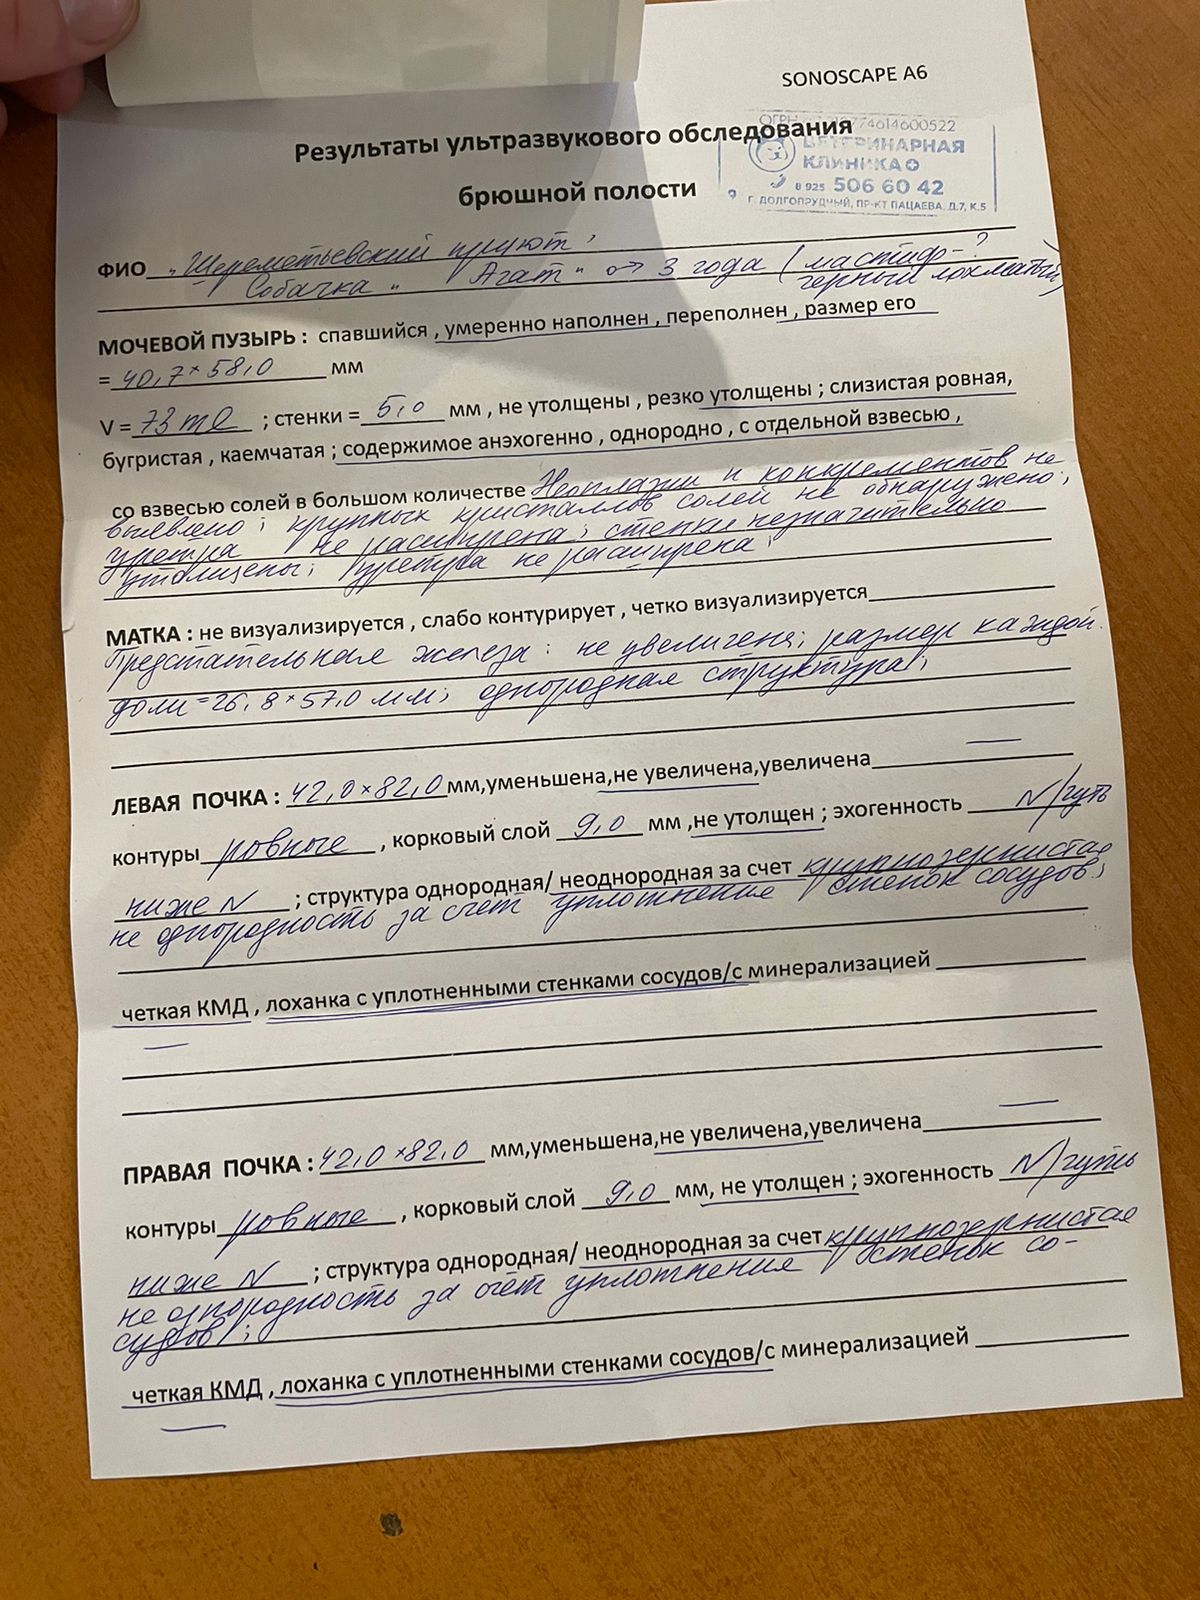 SONOSCAPE A6
Результаты ультразвукового обследования
брюшной полости
774614600522
ВЕТЕРИНАРНАЯ
КЛИНИКА
8 925 506 60 42
Г. ДОЛГОПРУДНЫЙ, ПР-КТ ПАЦАЕВА, Д.7, К.5
ФИО „Шереметьевский приют,
Собачка „Агат“ ♂ 3 года (мастиф-?
черный лохматый)
МОЧЕВОЙ ПУЗЫРЬ : спавшийся , умеренно наполнен , переполнен , размер его
= 40,7 × 58,0 мм
V = 73 ml ; стенки = 5,0 мм , не утолщены , резко утолщены ; слизистая ровная,
бугристая , каемчатая ; содержимое анэхогенно , однородно , с отдельной взвесью ,
со взвесью солей в большом количестве Неоплазии и конкрементов не
выявлено; крупных кристаллов солей не обнаружено;
уретра не расширена; стенки незначительно
утолщены; Уретра не расширена;
МАТКА : не визуализируется , слабо контурирует , четко визуализируется
Предстательная железа: не увеличена; размер каждой
доли = 26,8 × 57,0 мм; однородная структура;
ЛЕВАЯ ПОЧКА : 42,0 × 82,0 мм,уменьшена,не увеличена,увеличена
контуры ровные , корковый слой 9,0 мм ,не утолщен ; эхогенность N/чуть
ниже N ; структура однородная/ неоднородная за счет крупнозернистая
не однородность за счёт уплотнения стенок сосудов;
четкая КМД , лоханка с уплотненными стенками сосудов/с минерализацией
ПРАВАЯ ПОЧКА : 42,0 × 82,0 мм,уменьшена,не увеличена,увеличена
контуры ровные , корковый слой 9,0 мм, не утолщен ; эхогенность N/чуть
ниже N ; структура однородная/ неоднородная за счет крупнозернистая
не однородность за счёт уплотнения стенок со-
судов;
четкая КМД , лоханка с уплотненными стенками сосудов/с минерализацией